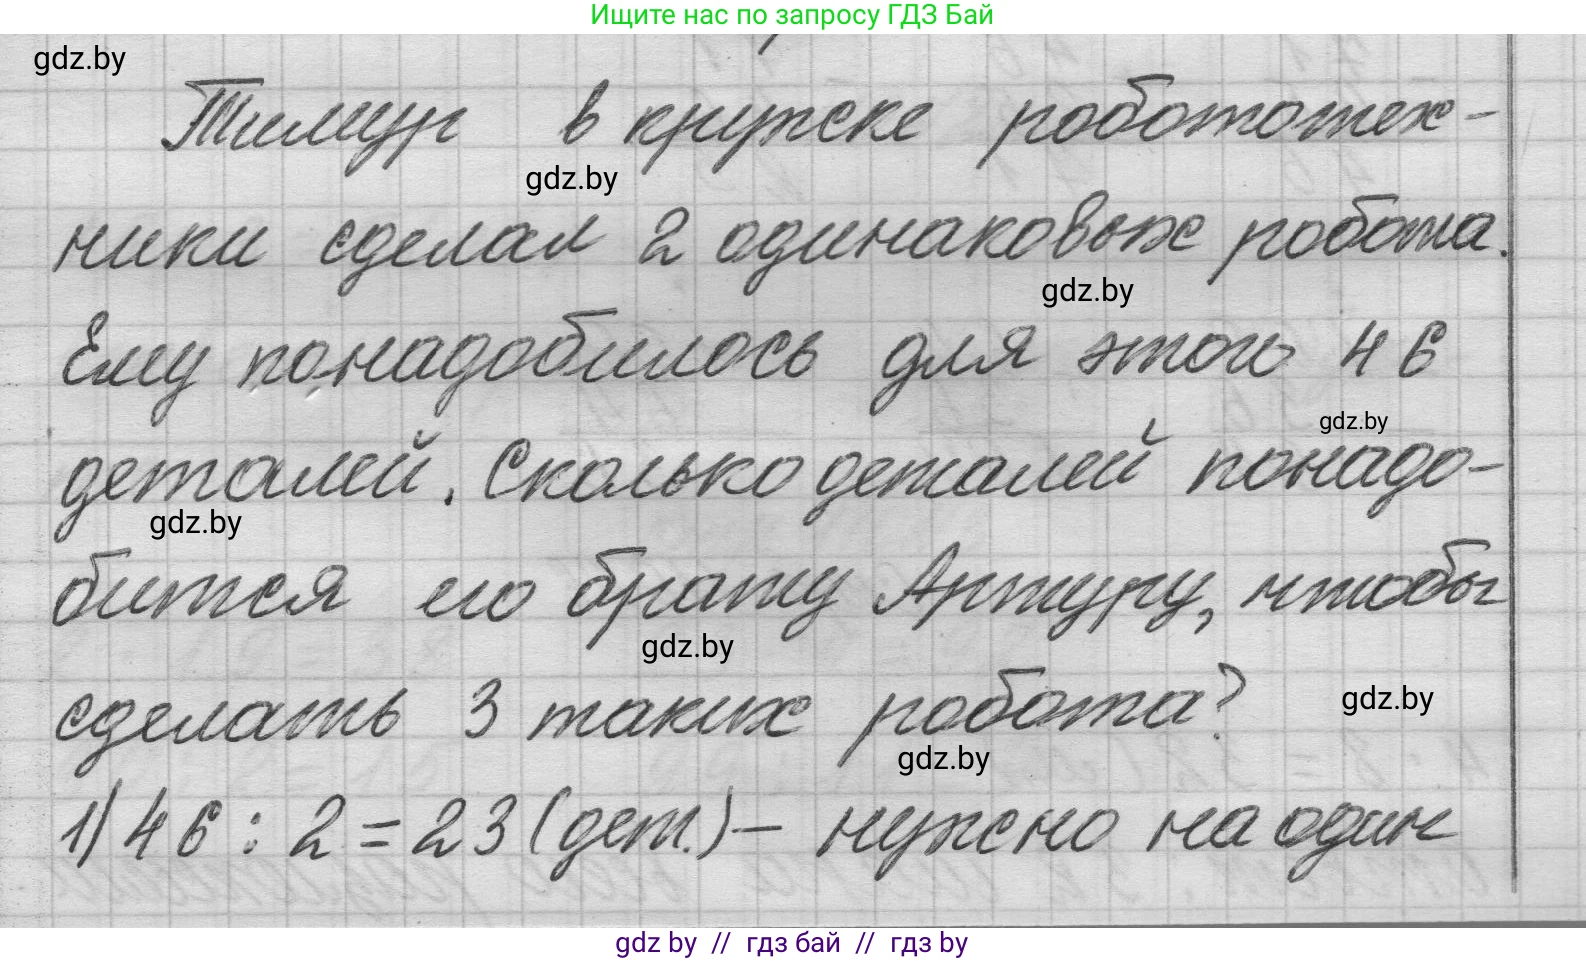 Ищите нас по запросу ГДЗ Бай
gdz.by
Тимур в кружке робототех-
gdz.by
ники сделал 2 одинаковых робота.
gdz.by
Ему понадобилось для этого 46
gdz.by
деталей. Сколько деталей понадо-
gdz.by
бится его брату Артуру, чтобы
gdz.by
сделать 3 таких робота?
gdz.by
gdz.by
1) 46 : 2 = 23 (дет.) – нужно на один
gdz by // гдз бай // gdz by